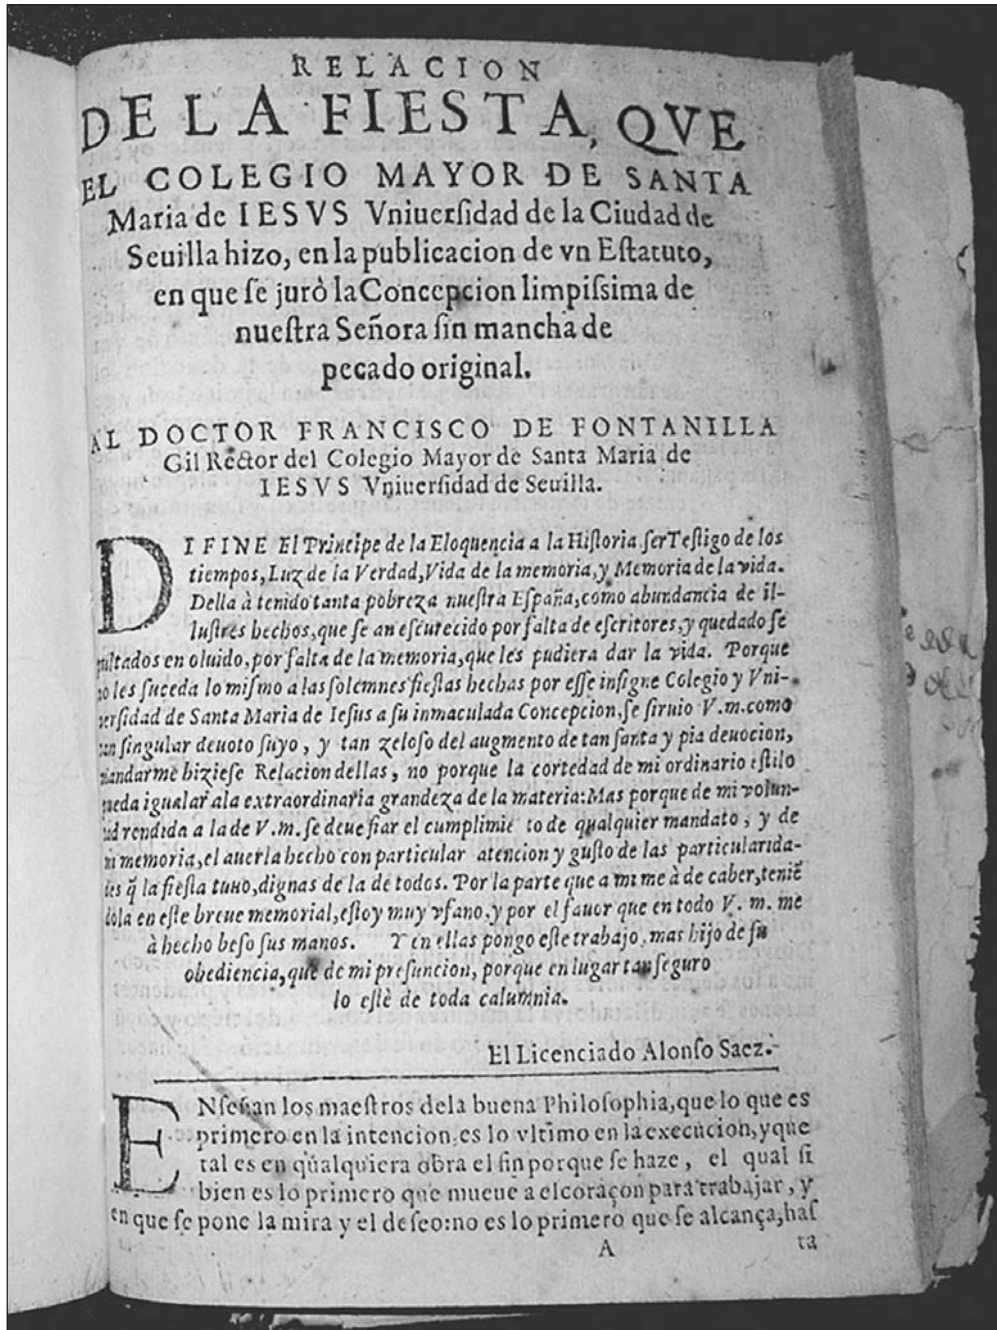 RELACION
DE LA FIESTA, QVE
EL COLEGIO MAYOR DE SANTA
Maria de IESVS Vniuerſidad de la Ciudad de
Seuilla hizo, en la publicacion de vn Eſtatuto,
en que ſe jurò la Concepcion limpiſsima de
nueſtra Señora ſin mancha de
pecado original.
AL DOCTOR FRANCISCO DE FONTANILLA
Gil Rector del Colegio Mayor de Santa Maria de
IESVS Vniuerſidad de Seuilla.
DIFINE El Principe de la Eloquencia a la Hiſtoria ſer Teſtigo de los
tiempos, Luz de la Verdad, Vida de la memoria, y Memoria de la vida.
Della à tenido tanta pobreza nueſtra Eſpaña, como abundancia de il-
luſtres hechos, que ſe an eſcurecido por falta de eſcritores, y quedado ſe
pultados en oluido, por falta de la memoria, que les pudiera dar la vida. Porque
no les ſuceda lo miſmo a las ſolemnes fieſtas hechas por eſſe inſigne Colegio y Vni-
uerſidad de Santa Maria de Ieſus a ſu inmaculada Concepcion, ſe ſiruio V.m. como
tan ſingular deuoto ſuyo, y tan zeloſo del augmento de tan ſanta y pia deuocion,
mandarme hizieſe Relacion dellas, no porque la cortedad de mi ordinario eſtilo
pueda igualar a la extraordinaria grandeza de la materia: Mas porque de mi volun-
tad rendida a la de V.m. ſe deue fiar el cumplimiẽ to de qualquier mandato, y de
mi memoria, el auerla hecho con particular atencion y guſto de las particularida-
des q̃ la fieſta tuuo, dignas de la de todos. Por la parte que a mi me à de caber, teniẽ
dola en eſte breue memorial, eſtoy muy vfano, y por el fauor que en todo V. m. me
à hecho beſo ſus manos. Y en ellas pongo eſte trabajo, mas hijo de ſu
obediencia, que de mi preſuncion, porque en lugar tan ſeguro
lo eſtè de toda calumnia.
El Licenciado Alonſo Saez.
ENſeñan los maeſtros dela buena Philoſophia, que lo que es
primero en la intencion, es lo vltimo en la execucion, y que
tal es en qualquiera obra el fin porque ſe haze, el qual ſi
bien es lo primero que mueue a el coraçon para trabajar, y
en que ſe pone la mira y el deſeo: no es lo primero que ſe alcança, haſ
A ta